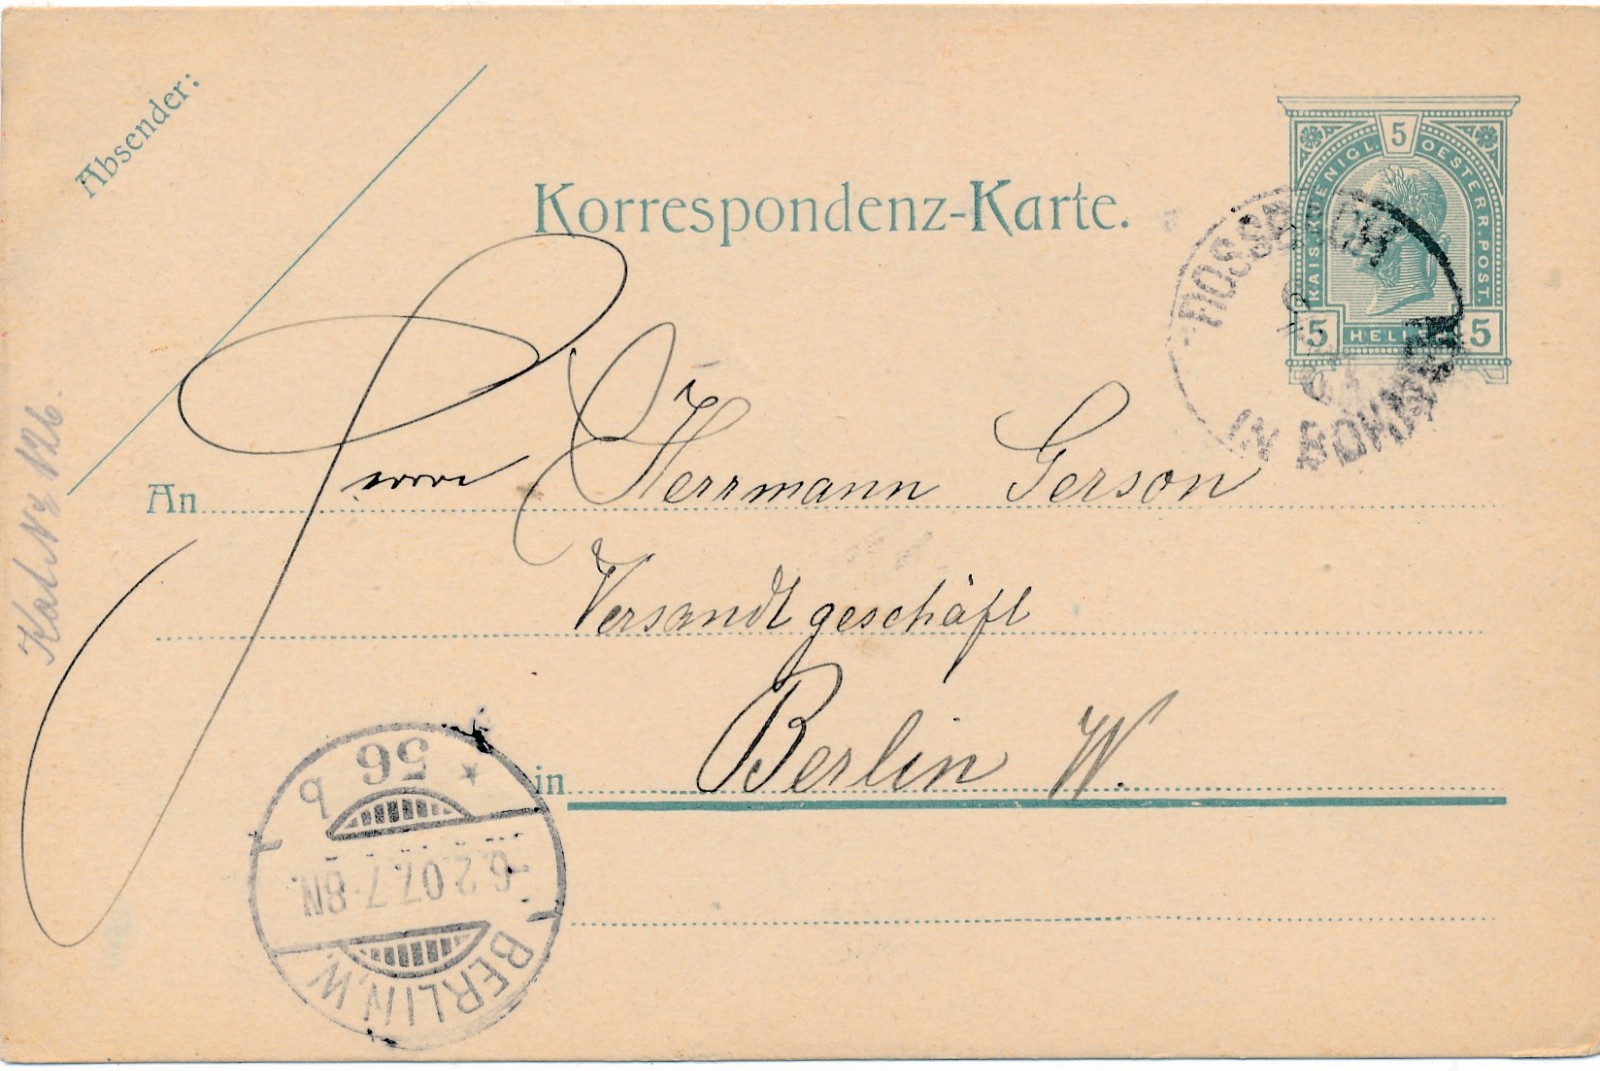 Absender:
Korrespondenz-Karte.
5
KAIS. KOENIGL. OESTERR. POST.
5 HELLER 5
ROSSBACH
IN BÖHMEN
An Herrn Herrmann Gerson
Versandtgeschäft
in Berlin W.
56 b
-6.2.07.7-8N.
BERLIN.W.